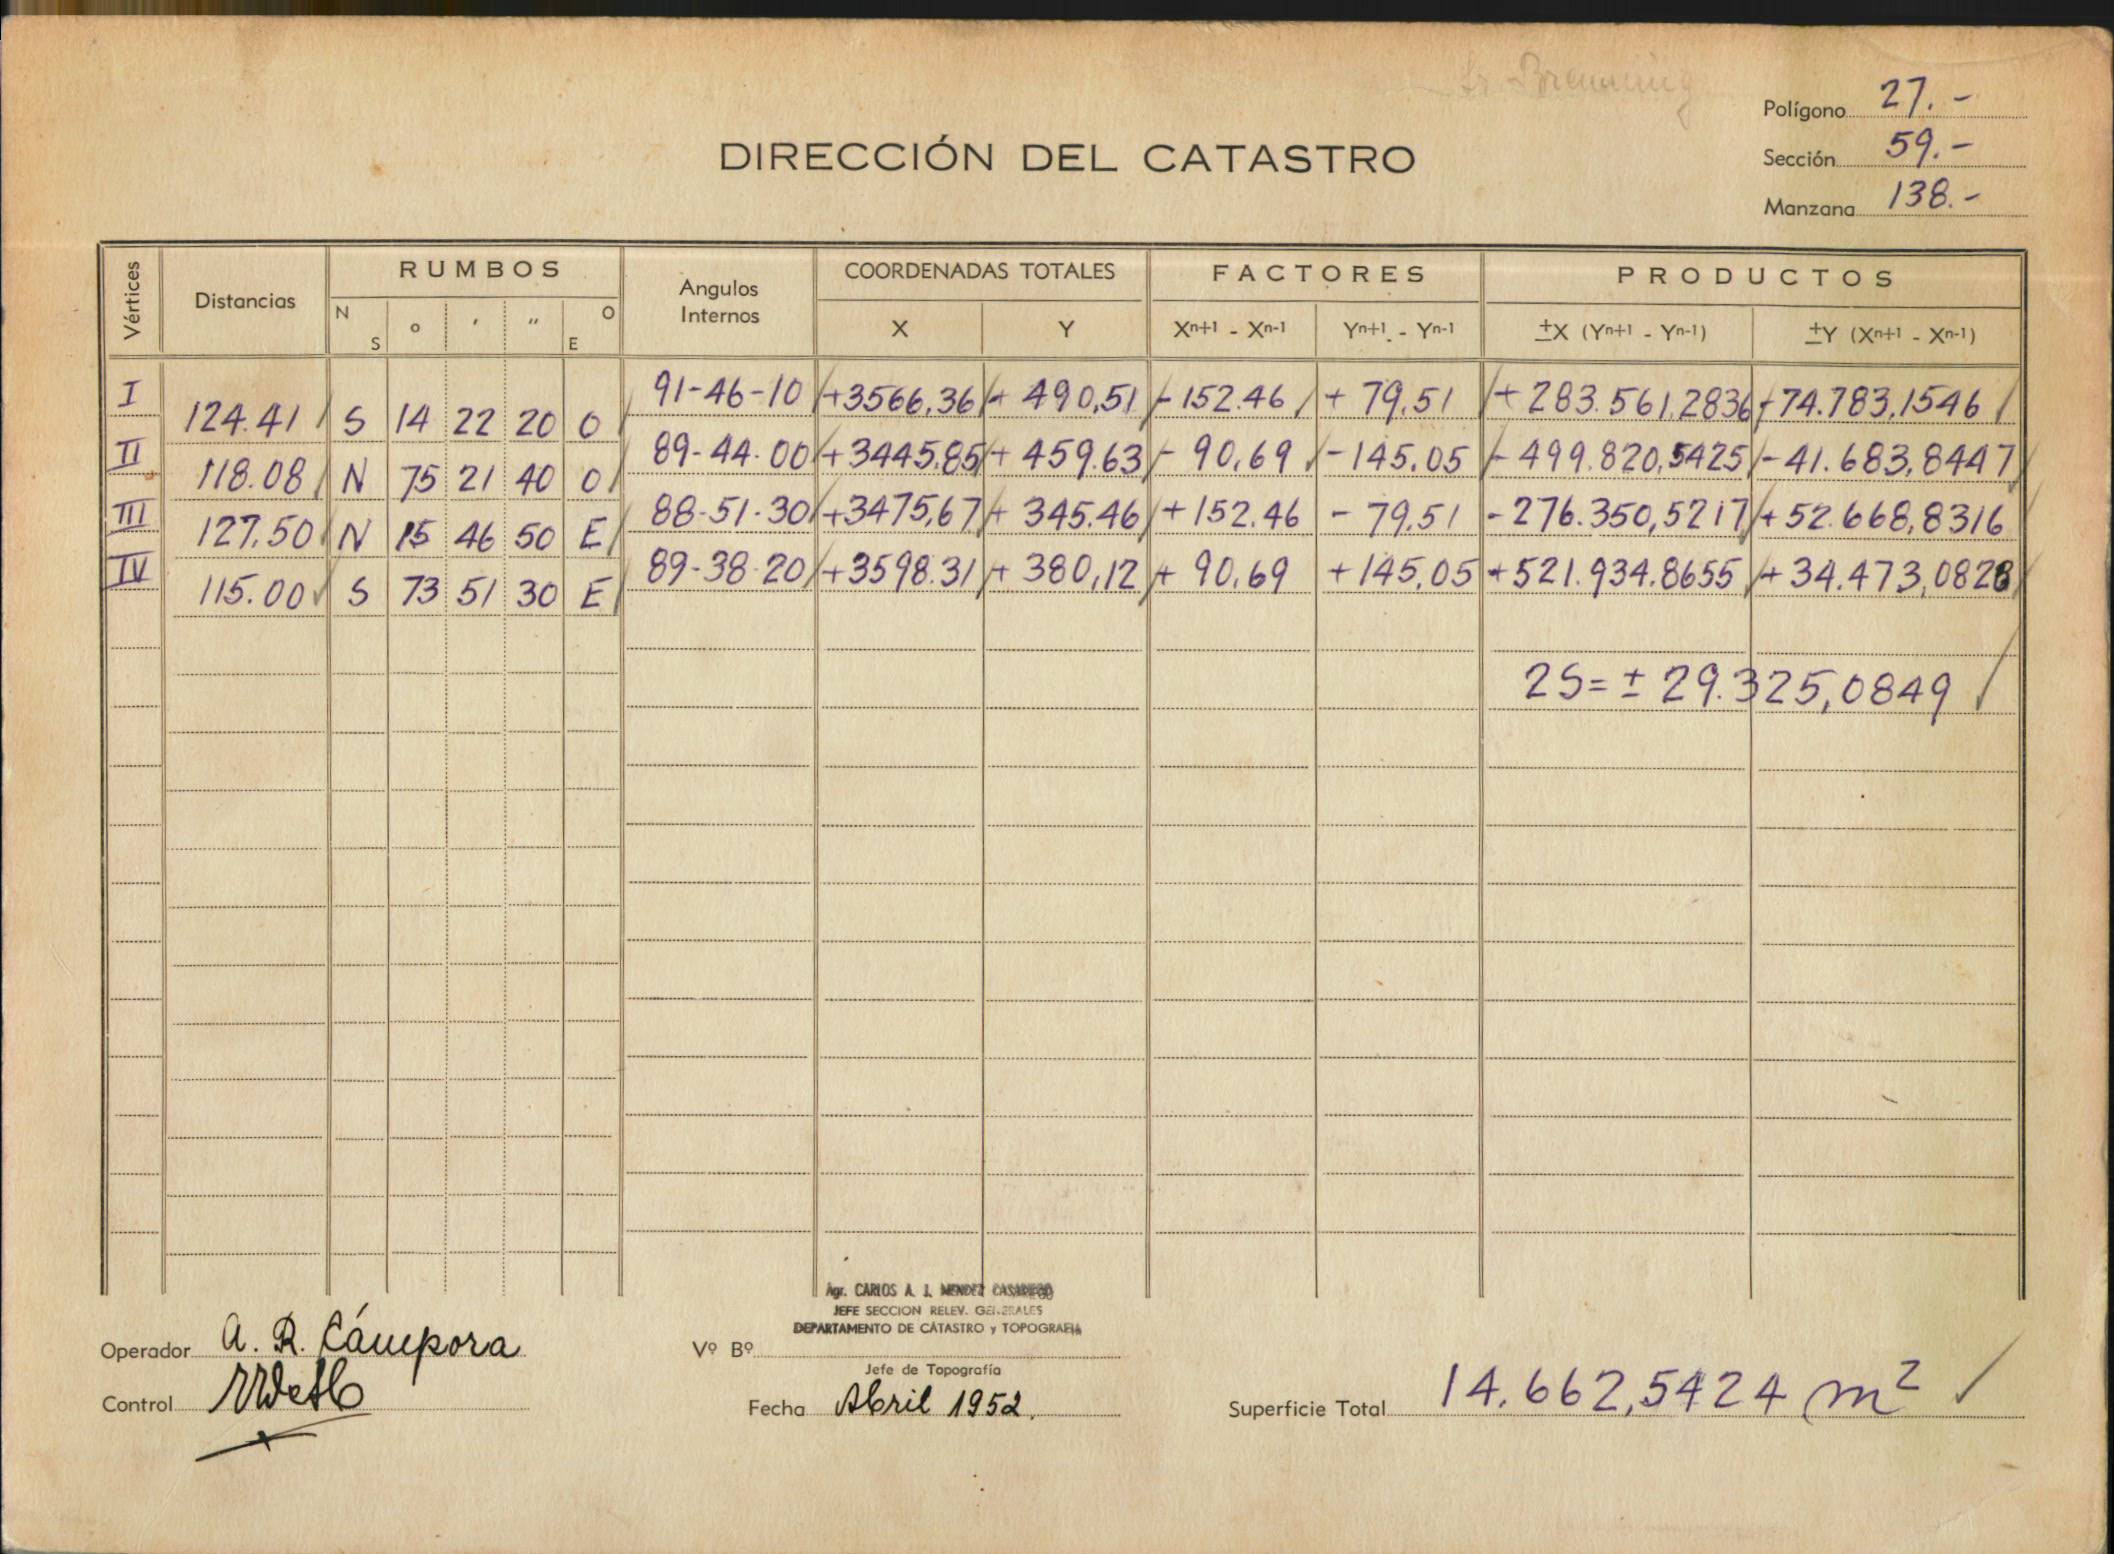 Polígono 27.-
DIRECCIÓN DEL CATASTRO
Sección 59.-
Manzana 138.-
Vértices Distancias RUMBOS Angulos Internos COORDENADAS TOTALES FACTORES PRODUCTOS
N S ° ' " O E X Y Xn+1 - Xn-1 Yn+1 - Yn-1 ±X (Yn+1 - Yn-1) ±Y (Xn+1 - Xn-1)
I 91-46-10 +3566,36 + 490,51 - 152.46 + 79,51 + 283.561,2836 +74.783,1546
124.41 S 14 22 20 O
II 89-44.00 +3445,85 + 459.63 - 90,69 -145,05 - 499.820,5425 -41.683,8447
118.08 N 75 21 40 O
III 88-51-30 +3475,67 + 345.46 +152.46 - 79,51 -276.350,5217 +52.668,8316
127,50 N 15 46 50 E
IV 89-38-20 +3598.31 + 380,12 + 90,69 +145,05 +521.934.8655 +34.473,0828
115.00 S 73 51 30 E
2S=± 29.325,0849
Agr. CARLOS A. J. MENDEZ CASARIEGO
JEFE SECCION RELEV. GENERALES
DEPARTAMENTO DE CATASTRO y TOPOGRAFIA
Operador A. R. Cámpora
Vº Bº
Jefe de Topografía
Control
Fecha Abril 1952.
Superficie Total 14.662,5424 m²